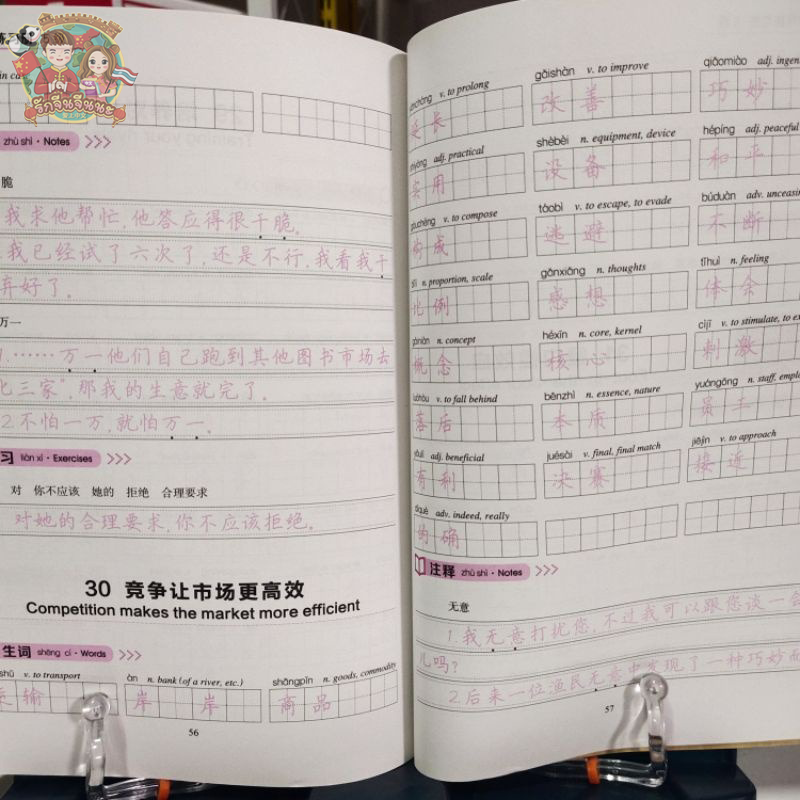 รักจีนจีนนะ
练习
zhù shì · Notes
脆
我求他帮忙,他答应得很干脆。
我已经试了六次了,还是不行,我看我干
弃好了。
万一
1.……万一他们自己跑到其他图书市场去
比三家”,那我的生意就完了。
2.不怕一万,就怕万一。
习 liàn xí · Exercises
对 你不应该 她的 拒绝 合理要求
对她的合理要求,你不应该拒绝。
30 竞争让市场更高效
Competition makes the market more efficient
生词 shēng cí · Words
v. to transport
输
àn n. bank (of a river, etc.)
岸 岸
shāngpǐn n. goods, commodity
商 品
56
v. to prolong
延 长
gǎishàn v. to improve
改 善
qiǎomiào adj. ingen
巧 妙
adj. practical
实 用
shèbèi n. equipment, device
设 备
hépíng adj. peaceful
和 平
v. to compose
构 成
táobì v. to escape, to evade
逃 避
búduàn adv. unceasin
不 断
n. proportion, scale
比 例
gǎnxiǎng n. thoughts
感 想
tǐhuì n. feeling
体 会
n. concept
概 念
héxīn n. core, kernel
核 心
cìjī v. to stimulate, to ex
刺 激
v. to fall behind
落 后
běnzhì n. essence, nature
本 质
yuángōng n. staff, emplo
员 工
adj. beneficial
有 利
juésài v. final, final match
决 赛
jiējìn v. to approach
接 近
díquè adv. indeed, really
的 确
注释 zhù shì · Notes
无意
1.我无意打扰您,不过我可以跟您谈一会
儿吗?
2.后来一位渔民无意中发现了一种巧妙而
57